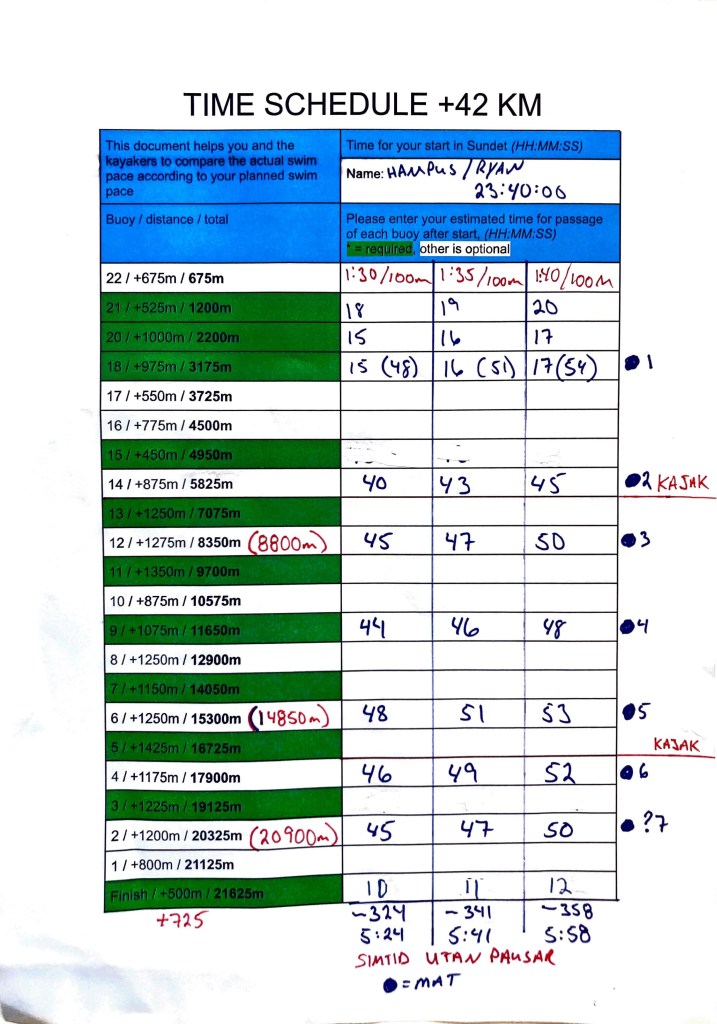 TIME SCHEDULE +42 KM
This document helps you and the
kayakers to compare the actual swim
pace according to your planned swim
pace
Time for your start in Sundet (HH:MM:SS)
Name: HAMPUS / RYAN
23:40:00
Buoy / distance / total
Please enter your estimated time for passage
of each buoy after start, (HH:MM:SS)
* = required, other is optional
22 / +675m / 675m 1:30/100m 1:35/100m 1:40/100m
21 / +525m / 1200m 18 19 20
20 / +1000m / 2200m 15 16 17
18 / +975m / 3175m 15 (48) 16 (51) 17 (54) ●1
17 / +550m / 3725m
16 / +775m / 4500m
15 / +450m / 4950m
14 / +875m / 5825m 40 43 45 ●2 KAJAK
13 / +1250m / 7075m
12 / +1275m / 8350m (8800m) 45 47 50 ●3
11 / +1350m / 9700m
10 / +875m / 10575m
9 / +1075m / 11650m 44 46 48 ●4
8 / +1250m / 12900m
7 / +1150m / 14050m
6 / +1250m / 15300m (14850m) 48 51 53 ●5
5 / +1425m / 16725m KAJAK
4 / +1175m / 17900m 46 49 52 ●6
3 / +1225m / 19125m
2 / +1200m / 20325m (20900m) 45 47 50 ● ?7
1 / +800m / 21125m
Finish / +500m / 21625m 10 11 12
+725 ~324 ~341 ~358
5:24 5:41 5:58
SIMTID UTAN PAUSAR
● = MAT